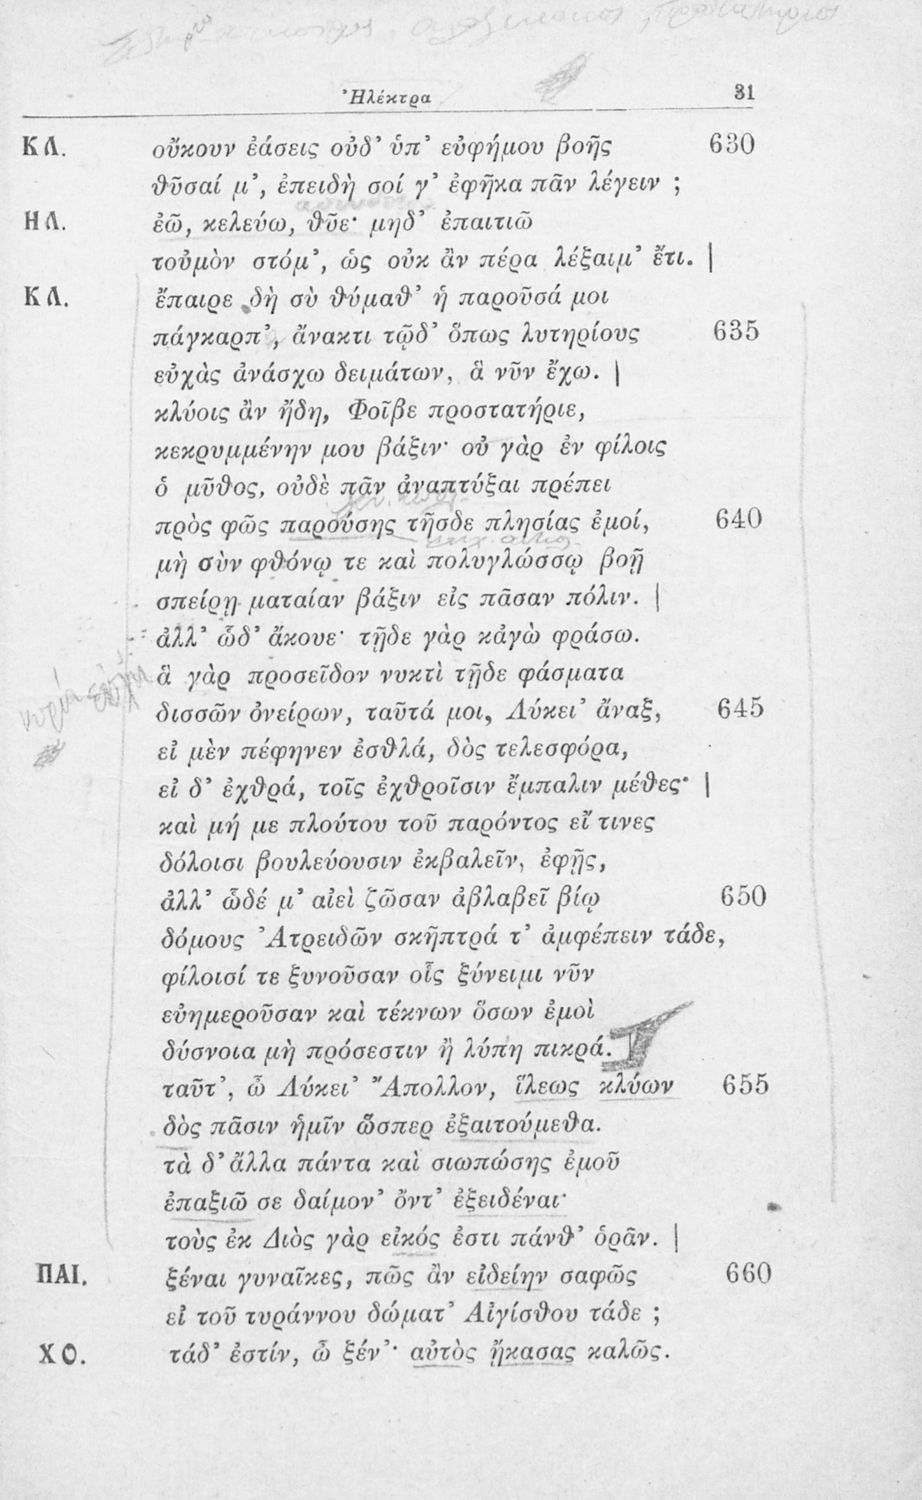 Ἠλέκτρα 31
ΚΛ. οὔκουν ἐάσεις οὐδ' ὑπ' εὐφήμου βοῆς 630
θῦσαί μ', ἐπειδὴ σοί γ' ἐφῆκα πᾶν λέγειν ;
ΗΛ. ἐῶ, κελεύω, θῦε· μηδ' ἐπαιτιῶ
τοὐμὸν στόμ', ὡς οὐκ ἂν πέρα λέξαιμ' ἔτι. |
ΚΛ. ἔπαιρε δὴ σὺ θύμαθ' ἡ παροῦσά μοι
πάγκαρπ', ἄνακτι τῷδ' ὅπως λυτηρίους 635
εὐχὰς ἀνάσχω δειμάτων, ἃ νῦν ἔχω. |
κλύοις ἂν ἤδη, Φοῖβε προστατήριε,
κεκρυμμένην μου βάξιν· οὐ γὰρ ἐν φίλοις
ὁ μῦθος, οὐδὲ πᾶν ἀναπτύξαι πρέπει
πρὸς φῶς παρούσης τῆσδε πλησίας ἐμοί, 640
μὴ σὺν φθόνῳ τε καὶ πολυγλώσσῳ βοῇ
σπείρῃ ματαίαν βάξιν εἰς πᾶσαν πόλιν. |
ἀλλ' ὧδ' ἄκουε· τῇδε γὰρ κἀγὼ φράσω.
ἃ γὰρ προσεῖδον νυκτὶ τῇδε φάσματα
δισσῶν ὀνείρων, ταῦτά μοι, Λύκει' ἄναξ, 645
εἰ μὲν πέφηνεν ἐσθλά, δὸς τελεσφόρα,
εἰ δ' ἐχθρά, τοῖς ἐχθροῖσιν ἔμπαλιν μέθες· |
καὶ μή με πλούτου τοῦ παρόντος εἴ τινες
δόλοισι βουλεύουσιν ἐκβαλεῖν, ἐφῇς,
ἀλλ' ὧδέ μ' αἰεὶ ζῶσαν ἀβλαβεῖ βίῳ 650
δόμους Ἀτρειδῶν σκῆπτρά τ' ἀμφέπειν τάδε,
φίλοισί τε ξυνοῦσαν οἷς ξύνειμι νῦν
εὐημεροῦσαν καὶ τέκνων ὅσων ἐμοὶ
δύσνοια μὴ πρόσεστιν ἢ λύπη πικρά.
ταῦτ', ὦ Λύκει' Ἄπολλον, ἵλεως κλύων 655
δὸς πᾶσιν ἡμῖν ὥσπερ ἐξαιτούμεθα.
τὰ δ' ἄλλα πάντα καὶ σιωπώσης ἐμοῦ
ἐπαξιῶ σε δαίμον' ὄντ' ἐξειδέναι·
τοὺς ἐκ Διὸς γὰρ εἰκός ἐστι πάνθ' ὁρᾶν. |
ΠΑΙ. ξέναι γυναῖκες, πῶς ἂν εἰδείην σαφῶς 660
εἰ τοῦ τυράννου δώματ' Αἰγίσθου τάδε ;
ΧΟ. τάδ' ἐστίν, ὦ ξέν'· αὐτὸς ᾔκασας καλῶς.